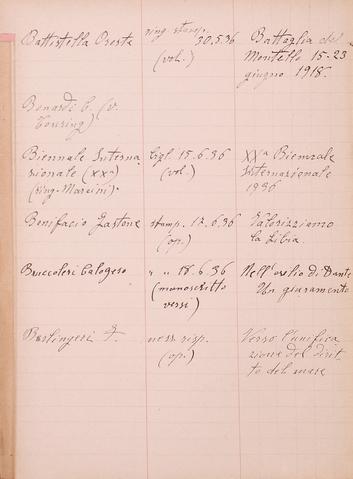 Battistella Oreste ring. stamp. 30.5.36 Battaglia del
(vol.) Montello 15-23
giugno 1918.
Benardi C. (v.
Touring)
Biennale Interna 15.6.36 XXª Biennale
zionale (XXª) (vol.) Internazionale
(ring. Maraini). 1936
Bonifacio Gastone stamp. 17.6.36 Valorizziamo
(op.) la Libia.
Buccoleri Calogero " " 18.6.36 Nell'esilio di Dante
(manoscritto Un giuramento
versi)
Berlingeri F. ness. risp. Verso l'unifica
(op.) zione del dirit
to del mare